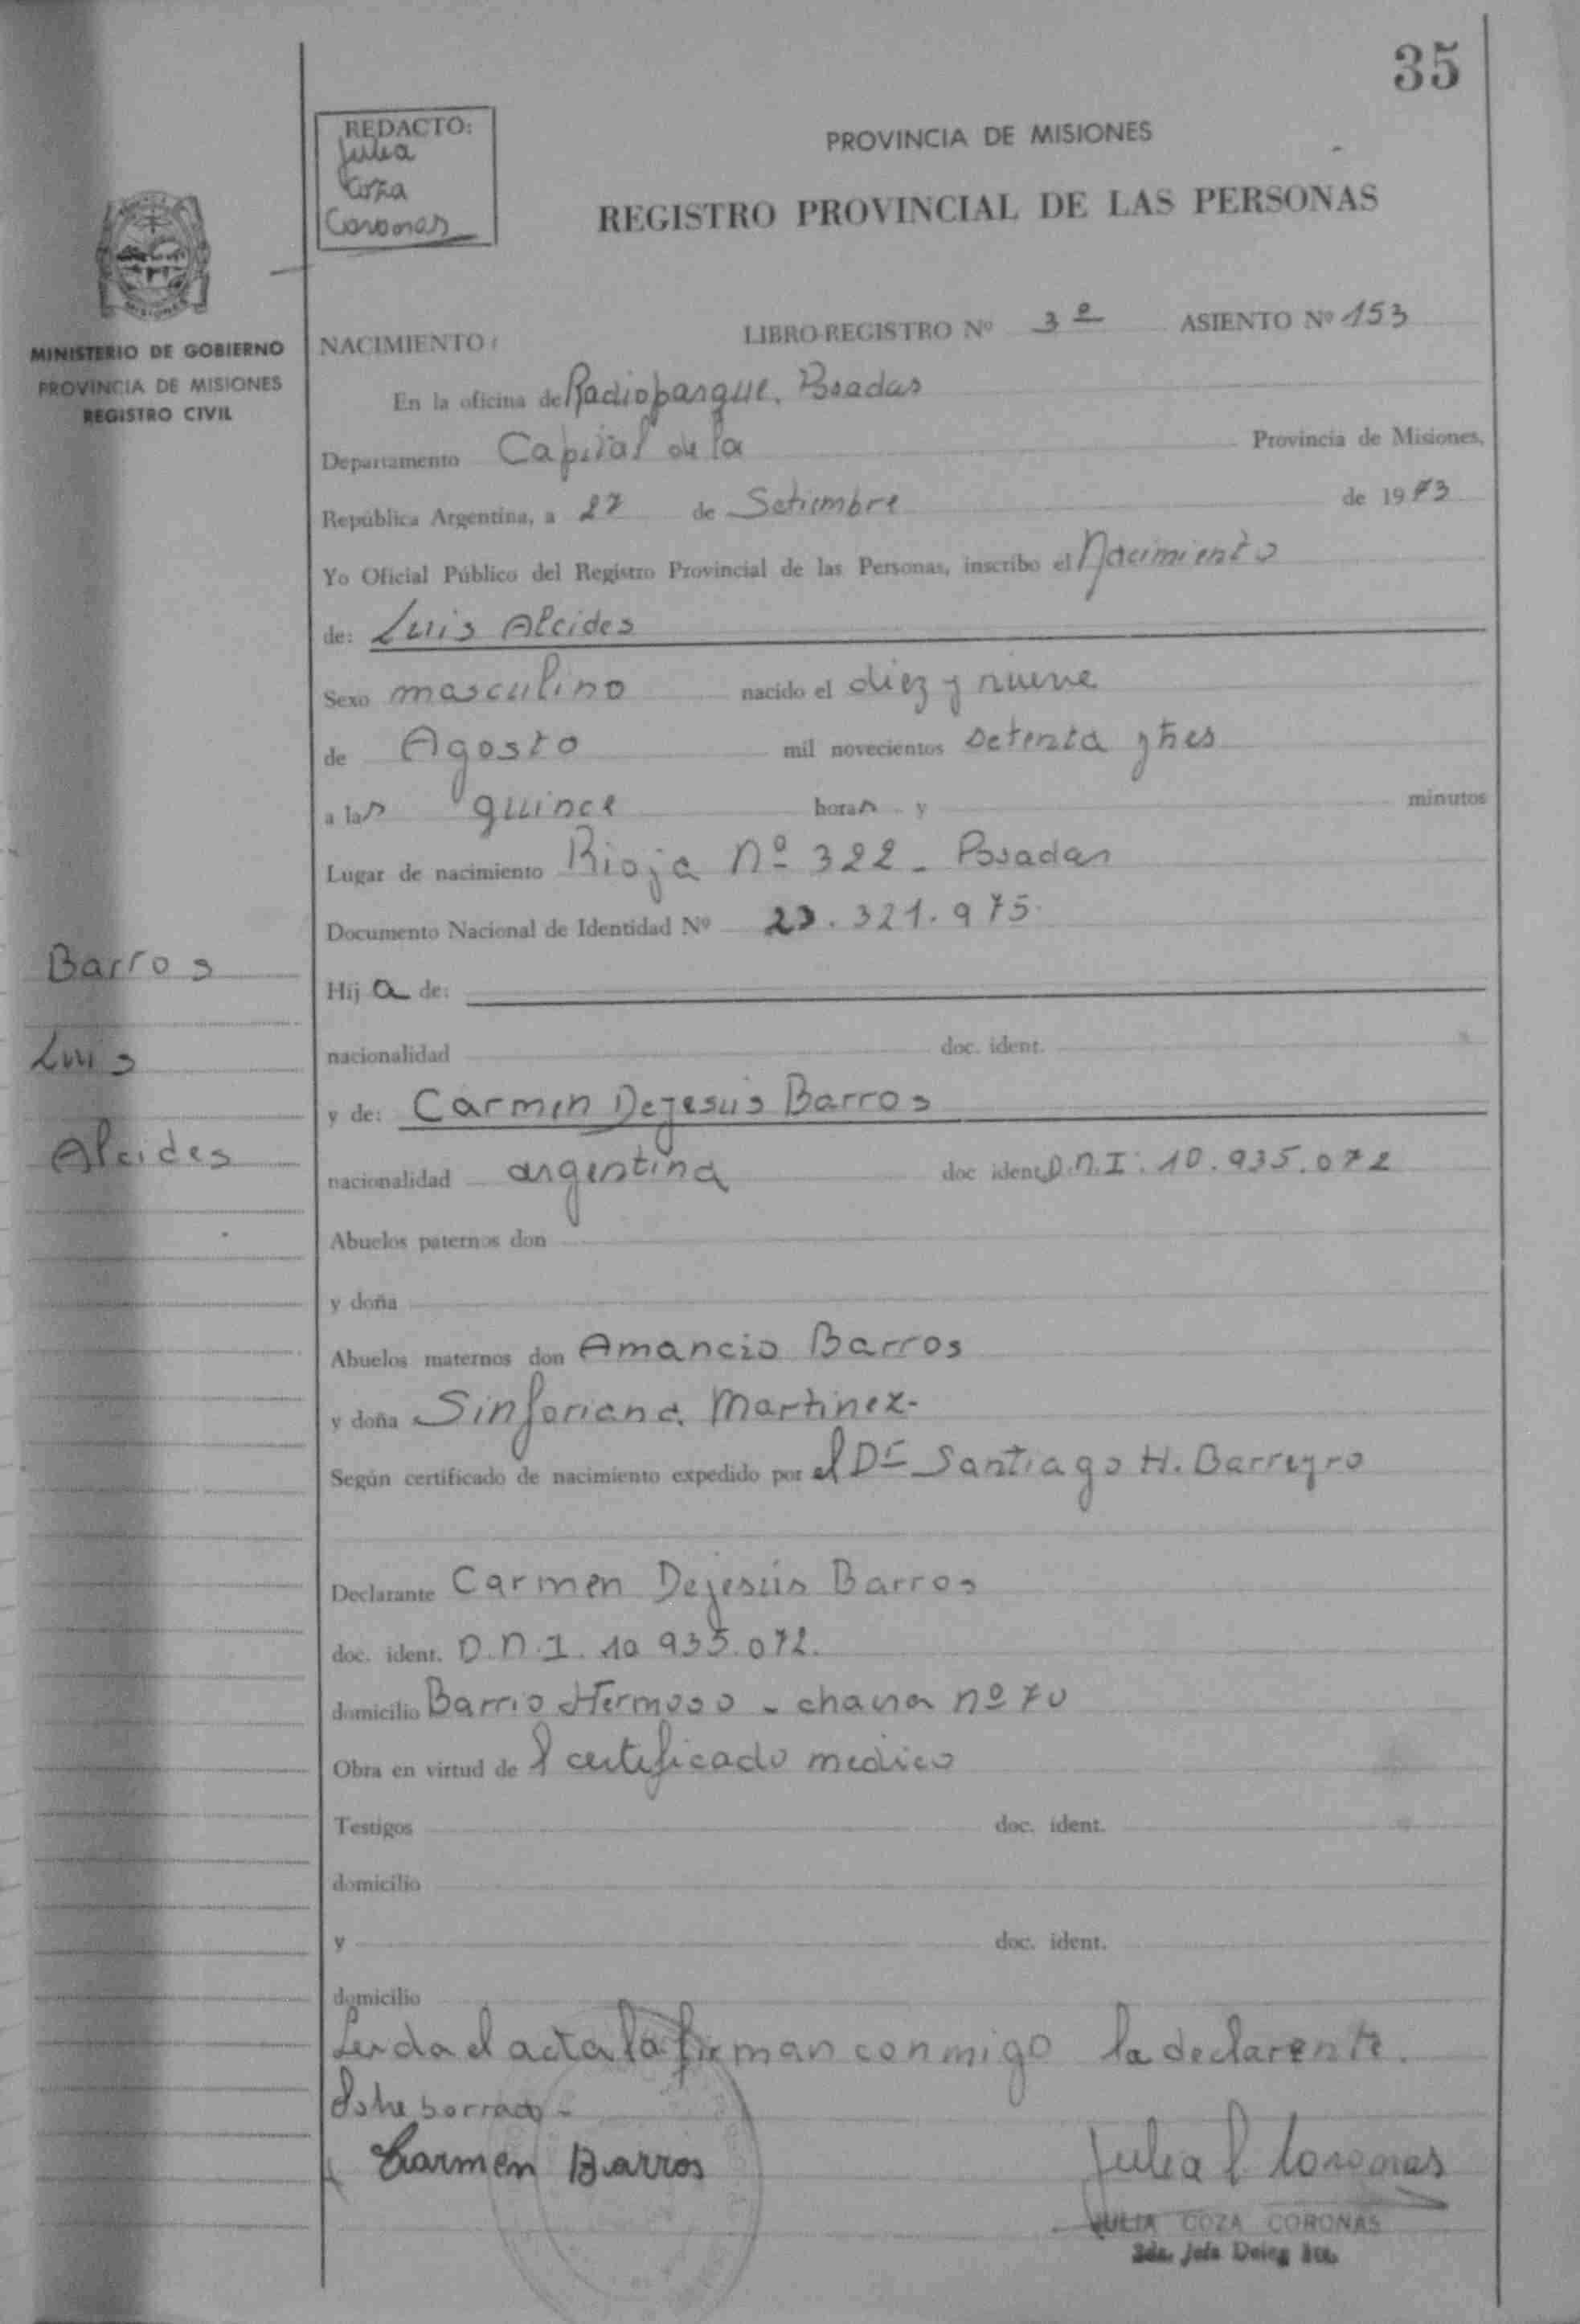 35
REDACTO:
Julia
Coza
Coronas
PROVINCIA DE MISIONES
REGISTRO PROVINCIAL DE LAS PERSONAS
MISIONES
MINISTERIO DE GOBIERNO
PROVINCIA DE MISIONES
REGISTRO CIVIL
NACIMIENTO: LIBRO-REGISTRO Nº 3º ASIENTO Nº 153
En la oficina de Radioparque. Posadas
Departamento Capital de la Provincia de Misiones,
República Argentina, a 27 de Setiembre de 1973
Yo Oficial Público del Registro Provincial de las Personas, inscribo el Nacimiento
de: Luis Alcides
Sexo masculino nacido el diez y nueve
de Agosto mil novecientos setenta y tres
a las quince horas y minutos
Lugar de nacimiento Rioja Nº 322 - Posadas
Documento Nacional de Identidad Nº 23.321.975.
Hij a de:
nacionalidad doc. ident.
y de: Carmen Dejesús Barros
nacionalidad argentina doc ident D.N.I. 10.935.072
Abuelos paternos don
y doña
Abuelos maternos don Amancio Barros
y doña Sinforiana Martinez.
Según certificado de nacimiento expedido por el Dr Santiago H. Barreyro
Declarante Carmen Dejesús Barros
doc. ident. D.N.I. 10.935.072.
domicilio Barrio Hermoso - chacra nº 70
Obra en virtud de l certificado medico
Testigos doc. ident.
domicilio
y doc. ident.
domicilio
Leida el acta la firman conmigo la declarente.
Sobre borrado -
Carmen Barros
Julia C. Coronas
JULIA COZA CORONAS
Barros
Luis
Alcides